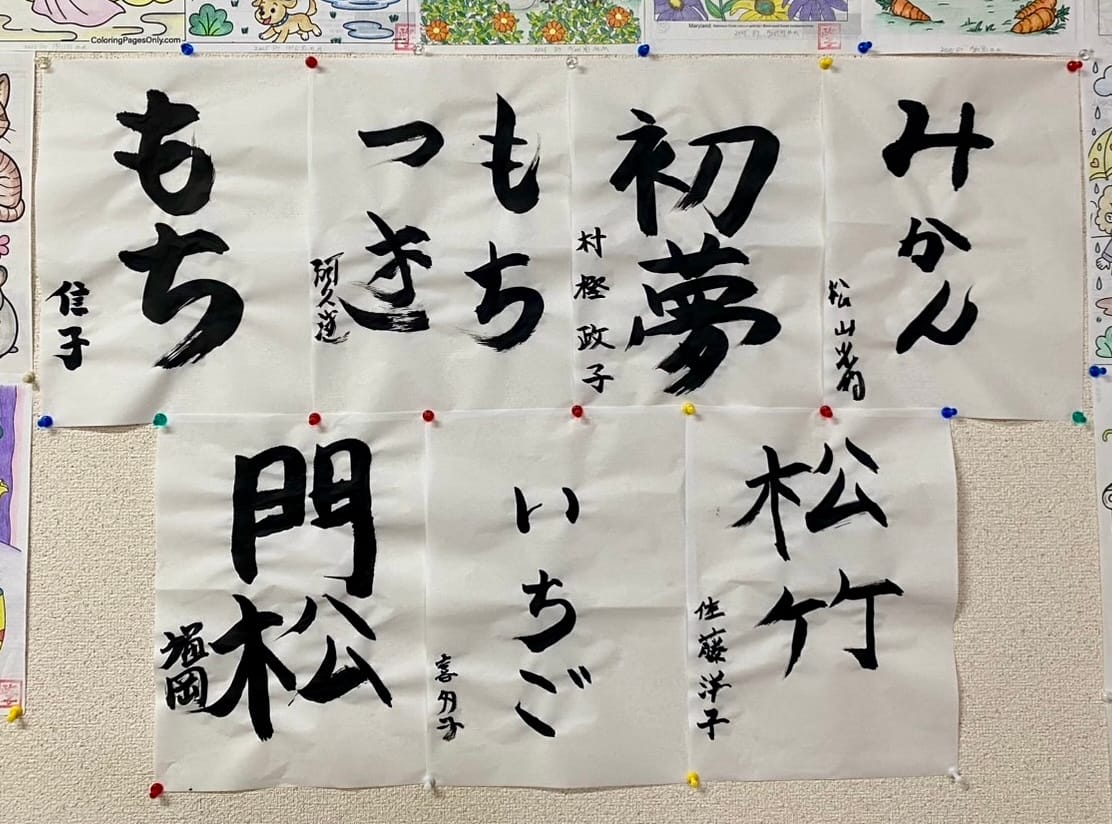 ColoringPagesOnly.com
Maryland
もち
信子
もち
つき
初夢
村樫政子
みかん
松山
門松
増岡
いちご
喜久子
松竹
佐藤洋子